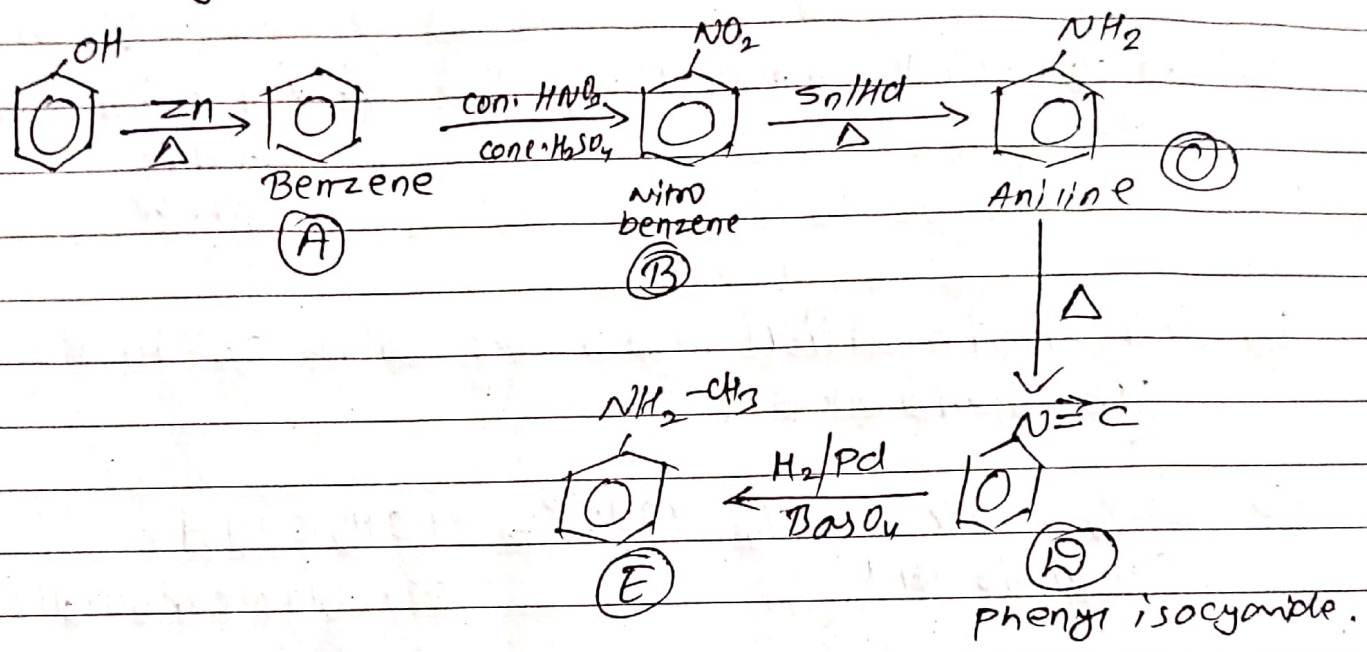 OH
Zn
Δ
Benzene
A
con. HNO3
conc. H2SO4
NO2
Nitro
benzene
B
Sn/Hcl
Δ
NH2
Aniline
C
Δ
N≡C
D
phenyl isocyanide.
H2/Pd
BaSO4
NH2-CH3
E